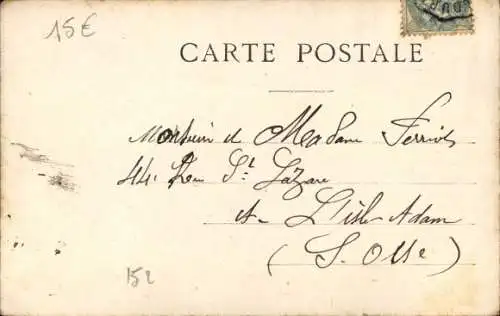 15€
CARTE POSTALE
Monsieur et Madame Ferrié
44 Rue St Lazare
A L'isle Adam
(S. Oise)
152